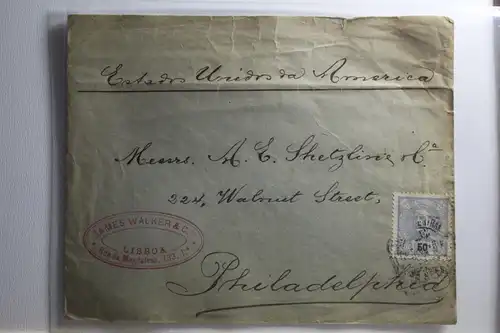 Estados Unidos da America
Messrs. A. E. Shetzline & Cª
324, Walnut Street,
Philadelphia
JAMES WALKER & C.
LISBOA
Rua da Magdalena, 133, 1.º